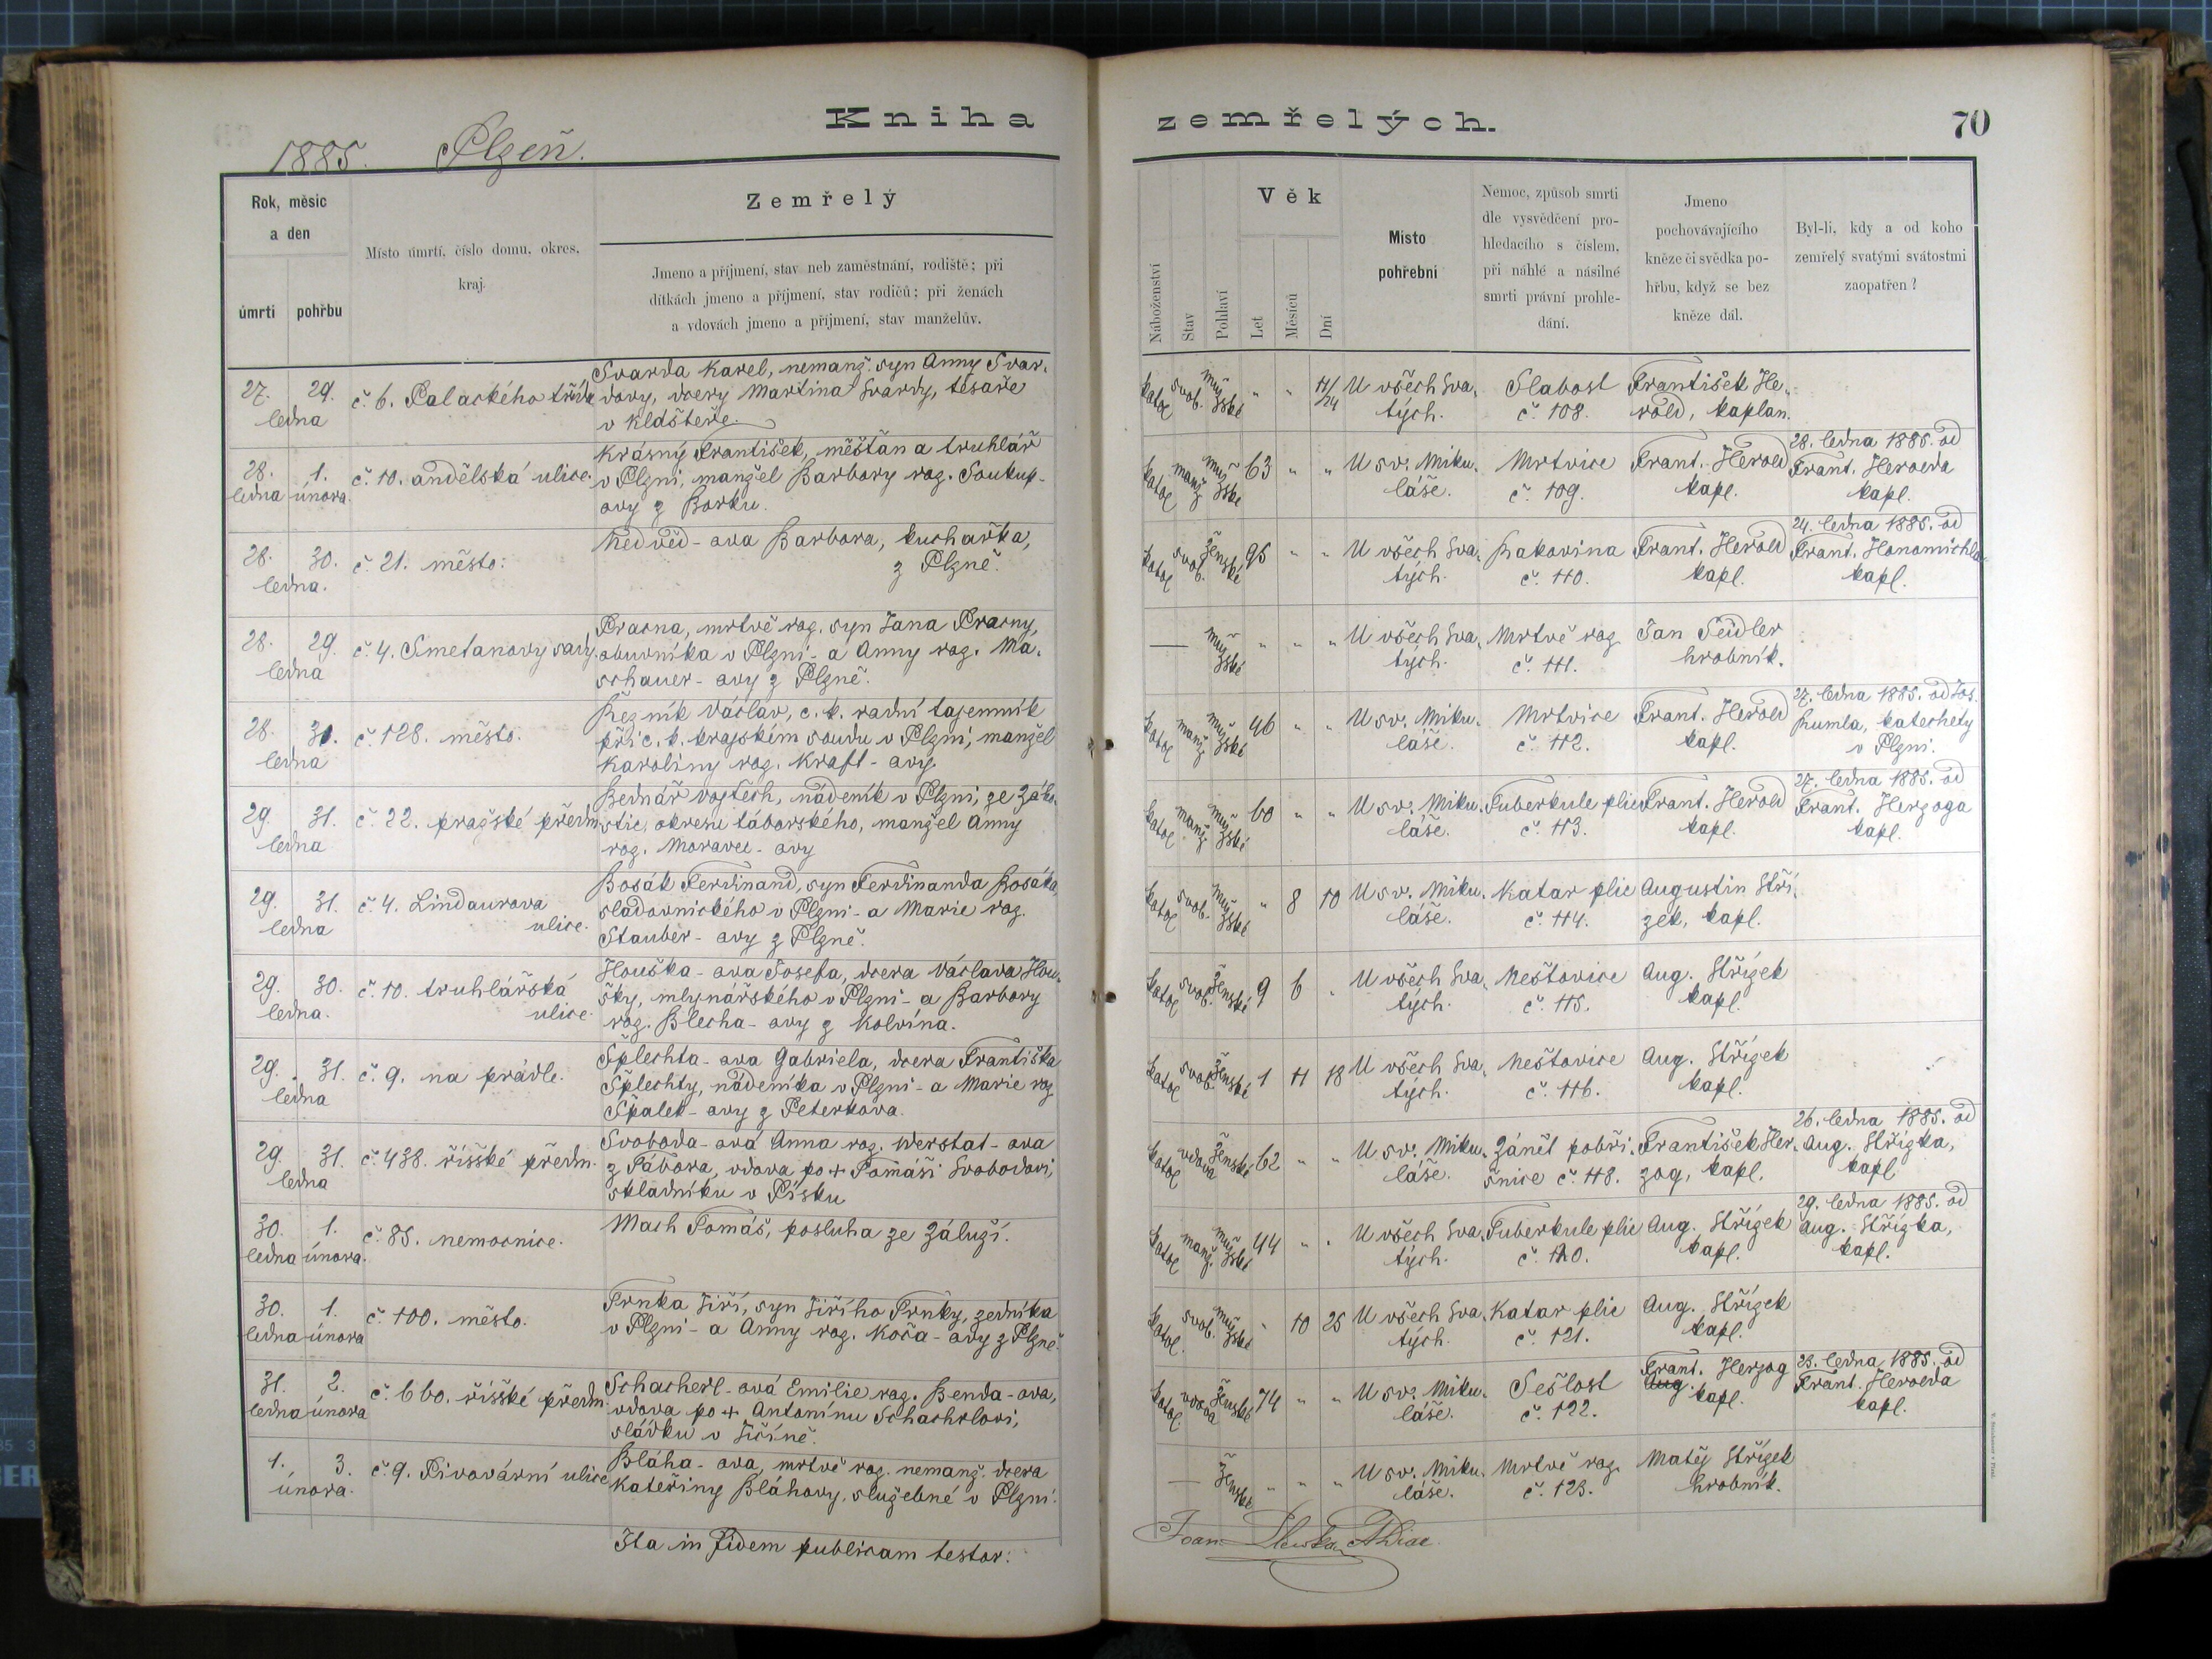 Kniha zemřelých.
70
1885. Plzeň.
Rok, měsíc
a den
úmrtí
pohřbu
Místo úmrtí, číslo domu, okres,
kraj.
Zemřelý
Jmeno a příjmení, stav neb zaměstnání, rodiště; při
dítkách jmeno a příjmení, stav rodičů; při ženách
a vdovách jmeno a příjmení, stav manželův.
Náboženství
Stav
Pohlaví
Věk
Let
Měsíců
Dní
Místo
pohřební
Nemoc, způsob smrti
dle vysvědčení pro-
hledacího s číslem,
při náhlé a násilné
smrti právní prohle-
dání.
Jmeno
pochovávajícího
kněze či svědka po-
hřbu, když se bez
kněze dál.
Byl-li, kdy a od koho
zemřelý svatými svátostmi
zaopatřen?
27. 29.
ledna
č. 6. Palackého třída
Svarda Karel, nemanž. syn Anny Svar-
dovy, dcery Martina Svardy, tesaře
v Klášteře.
katol svob. mužské " " 11/24
U všech Sva-
tých.
Slabost
č. 108.
František He-
rold, kaplan.
28. 1.
ledna února.
č. 10. andělská ulice.
Krásný František, měšťan a truhlář
v Plzni, manžel Barbory roz. Soukup-
ovy z Borku.
katol manž mužské 63 " "
U sv. Miku-
láše.
Mrtvice
č. 109.
Frant. Herold
kapl.
28. ledna 1885. od
Frant. Herolda
kapl.
28. 30.
ledna.
č. 21. město.
Nedvěd-ova Barbora, kuchařka,
z Plzně.
katol svob. ženské 95 " "
U všech Sva-
tých.
Rakovina
č. 110.
Frant. Herold
kapl.
24. ledna 1885. od
Frant. Honomichla
kapl.
28. 29.
ledna
č. 4. Smetanovy sady.
Pracna, mrtvě roz. syn Jana Pracny,
obuvníka v Plzni - a Anny roz. Ma-
schauer-ovy z Plzně.
— mužské " " "
U všech Sva-
tých.
Mrtvě roz
č. 111.
Jan Seidler
hrobník.
28. 31.
ledna
č. 128. město.
Řezník Václav, c. k. radní tajemník
při c. k. krajském soudu v Plzni, manžel
Karoliny roz. Kraft-ovy.
katol manž mužské 46 " "
U sv. Miku-
láše.
Mrtvice
č. 112.
Frant. Herold
kapl.
27. ledna 1885. od Jos.
Rumla, katechety
v Plzni.
29. 31.
ledna
č. 22. pražské předm.
Bednář Vojtěch, nádeník v Plzni, ze Zálo-
stic, okresu táborského, manžel Anny
roz. Moravec-ovy
katol manž mužské 60 " "
U sv. Miku-
láše.
Tuberkule plic
č. 113.
Frant. Herold
kapl.
27. ledna 1885. od
Frant. Herzoga
kapl.
29. 31.
ledna
č. 4. Lindaurova
ulice.
Bosák Ferdinand, syn Ferdinanda Bosáka,
sladovnického v Plzni - a Marie roz.
Stauber-ovy z Plzně.
katol svob. mužské " 8 10
U sv. Miku-
láše.
Katar plic
č. 114.
Augustin Stří-
zek, kapl.
29. 30.
ledna.
č. 10. truhlářská
ulice.
Houška-ova Josefa, dcera Václava Hou-
šky, mlynářského v Plzni - a Barbory
roz. Blecha-ovy z Kolvína.
katol svob. ženské 9 6 "
U všech Sva-
tých.
Neštovice
č. 115.
Aug. Střízek
kapl.
29. 31.
ledna
č. 9. na prádle.
Šplechta-ova Gabriela, dcera Františka
Šplechty, nádeníka v Plzni - a Marie roz
Špalek-ovy z Peterkova.
katol svob. ženské 1 11 18
U všech Sva-
tých.
Neštovice
č. 116.
Aug. Střízek
kapl.
29. 31.
ledna
č. 438. říšské předm.
Svoboda-ová Anna roz. Werstat-ova
z Tábora, vdova po + Tomáši Svobodovi,
skladníku v Písku
katol vdova ženské 62 " "
U sv. Miku-
láše.
Zánět pobři-
šnice č. 118.
František Her-
zog, kapl.
26. ledna 1885. od
Aug. Střízka,
kapl
30. 1.
ledna února.
č. 85. nemocnice.
Mach Tomáš, posluha ze Záluží.
katol manž. mužské 44 " "
U všech Sva-
tých.
Tuberkule plic
č. 120.
Aug. Střízek
kapl.
29. ledna 1885. od
Aug. Střízka,
kapl.
30. 1.
ledna února
č. 100. město.
Trnka Jiří, syn Jiřího Trnky, zedníka
v Plzni - a Anny roz. Koča-ovy z Plzně.
katol. svob. mužské " 10 25
U všech Sva-
tých.
Katar plic
č. 121.
Aug. Střízek
kapl.
31. 2.
ledna února
č. 660. říšské předm.
Schacherl-ová Emilie roz. Benda-ova,
vdova po + Antonínu Schacherlovi,
sládku v Jičíně.
katol. vdova ženské 74 " "
U sv. Miku-
láše.
Sešlost
č. 122.
Frant. Herzog
Aug. kapl.
23. ledna 1885. od
Frant. Herolda
kapl.
1. 3.
února.
č. 9. Pivovární ulice
Bláha-ova, mrtvě roz. nemanž. dcera
Kateřiny Bláhovy, služebné v Plzni.
— ženské " " "
U sv. Miku-
láše.
Mrtvě roz.
č. 123.
Matěj Střízek
hrobník.
Ita in fidem publicam testor:
Joan.